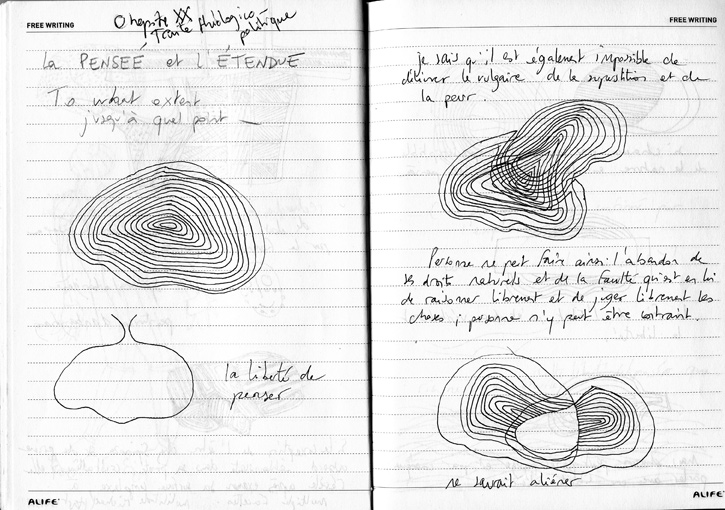 FREE WRITING
Chapitre XX
Traité théologico
politique
La PENSEÉ et l'ÉTENDUE
To what extent
jusqu'à quel point —
la liberté de
penser
ALIFE
FREE WRITING
je sais qu'il est également impossible de
délivrer le vulgaire de la superstition et de
la peur.
Personne ne peut faire ainsi l'abandon de
ses droits naturels et de la faculté qui est en lui
de raisonner librement et de juger librement les
choses ; personne n'y peut être contraint.
ne saurait aliéner
ALIFE